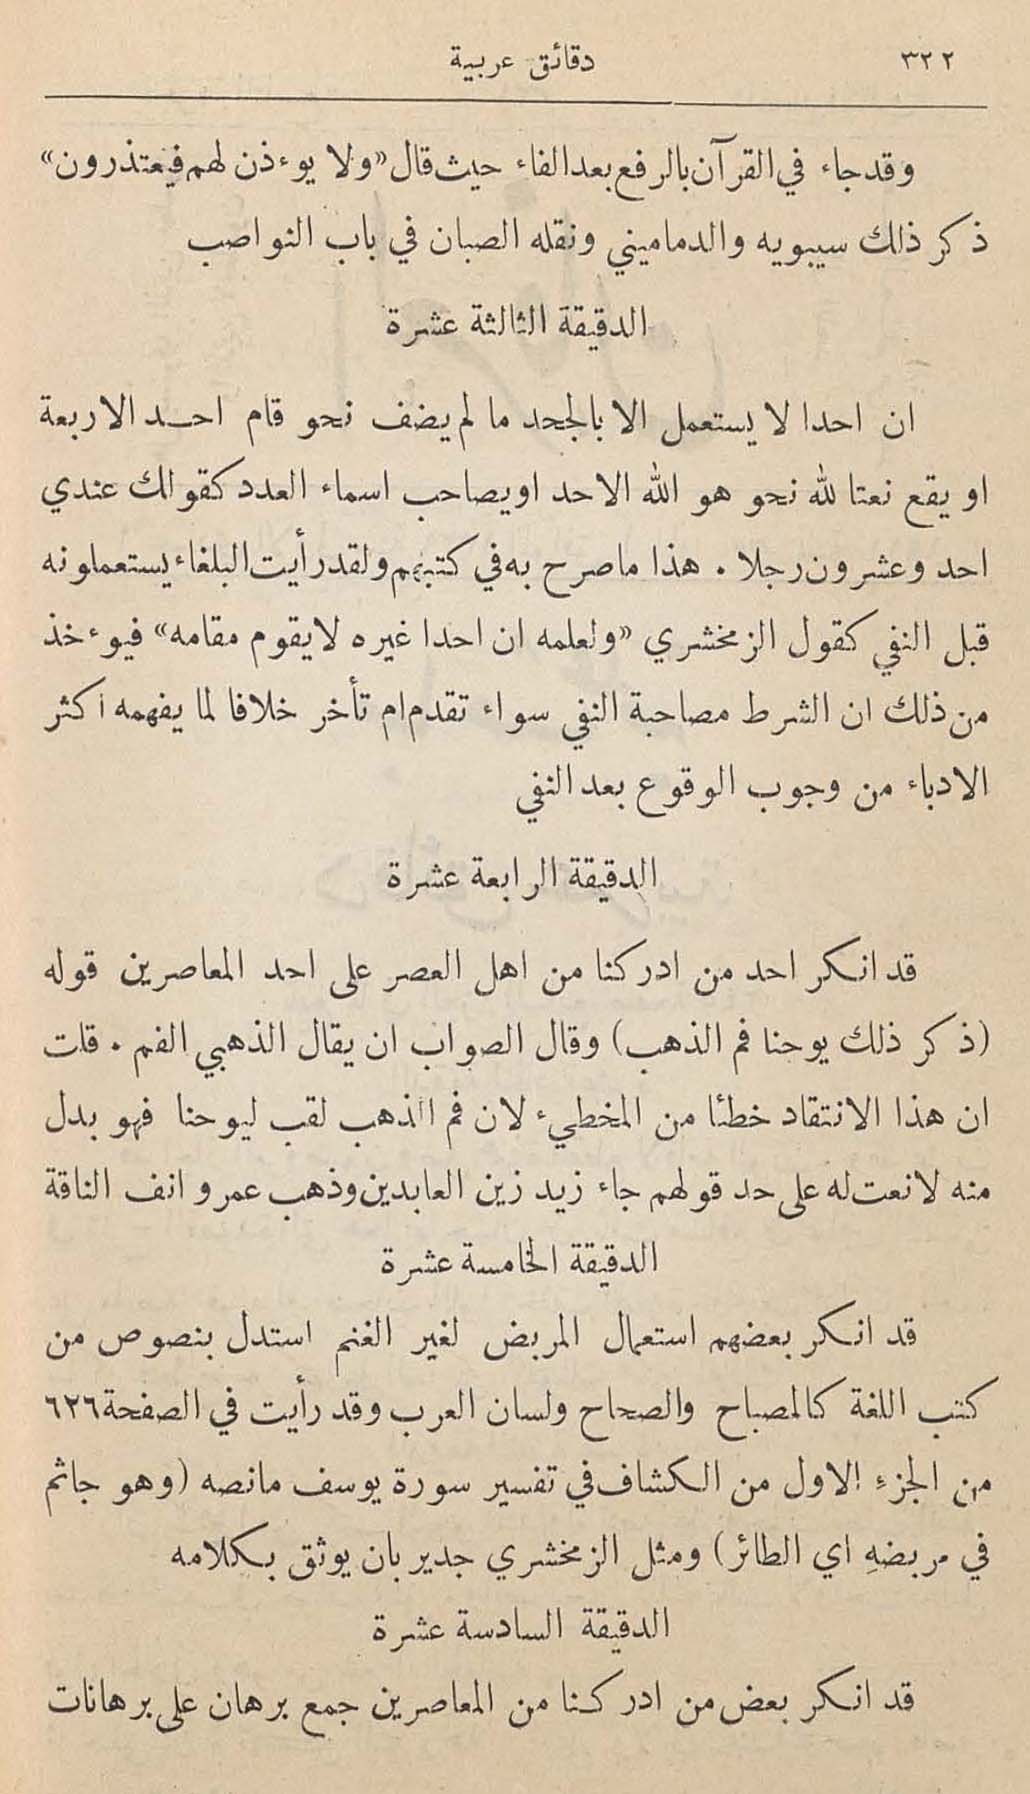 ٣٢٢ دقائق عربية
وقد جاء في القرآن بالرفع بعد الفاء حيث قال «ولا يوءذن لهم فيعتذرون»
ذكر ذلك سيبويه والدماميني ونقله الصبان في باب النواصب
الدقيقة الثالثة عشرة
ان احدا لا يستعمل الا بالجحد ما لم يضف نحو قام احد الاربعة
او يقع نعتا لله نحو هو الله الاحد او يصاحب اسماء العدد كقولك عندي
احد وعشرون رجلا . هذا ما صرح به في كتبهم ولقد رأيت البلغاء يستعملونه
قبل النفي كقول الزمخشري «ولعلمه ان احدا غيره لا يقوم مقامه» فيوءخذ
من ذلك ان الشرط مصاحبة النفي سواء تقدم ام تأخر خلافا لما يفهمه اكثر
الادباء من وجوب الوقوع بعد النفي
الدقيقة الرابعة عشرة
قد انكر احد من ادركنا من اهل العصر على احد المعاصرين قوله
(ذكر ذلك يوحنا فم الذهب) وقال الصواب ان يقال الذهبي الفم . قلت
ان هذا الانتقاد خطئا من المخطيء لان فم الذهب لقب ليوحنا فهو بدل
منه لا نعت له على حد قولهم جاء زيد زين العابدين وذهب عمرو انف الناقة
الدقيقة الخامسة عشرة
قد انكر بعضهم استعمال المربض لغير الغنم استدل بنصوص من
كتب اللغة كالمصباح والصحاح ولسان العرب وقد رأيت في الصفحة ٦٢٦
من الجزء الاول من الكشاف في تفسير سورة يوسف ما نصه (وهو جاثم
في مربضهِ اي الطائر) ومثل الزمخشري جدير بان يوثق بكلامه
الدقيقة السادسة عشرة
قد انكر بعض من ادركنا من المعاصرين جمع برهان على برهانات